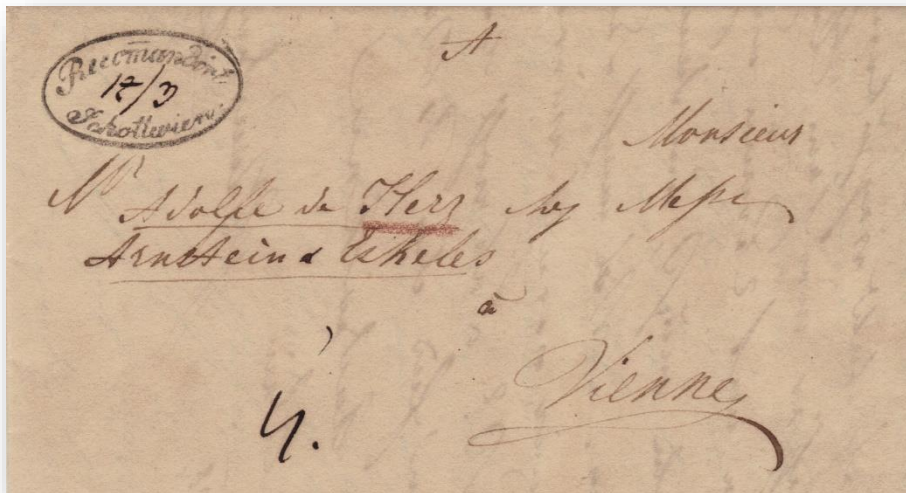 A
Recomandirt
17/3
Schottwien.
Monsieur
Mr Adolfe de Herz chez Messrs
Arnstein & Eskeles
à
Vienne
4.